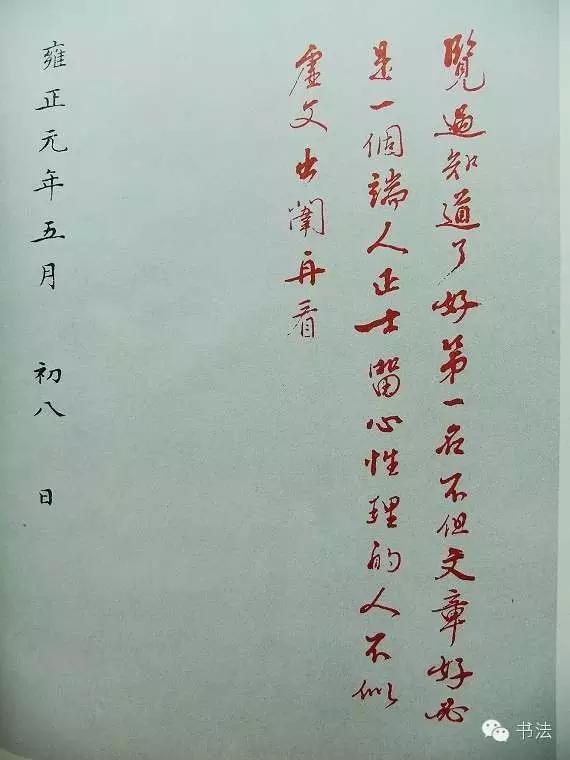 覽過知道了好第一名不但文章好必
是一個端人正士留心性理的人不似
虛文出闈再看
雍正元年五月 初八 日
书法